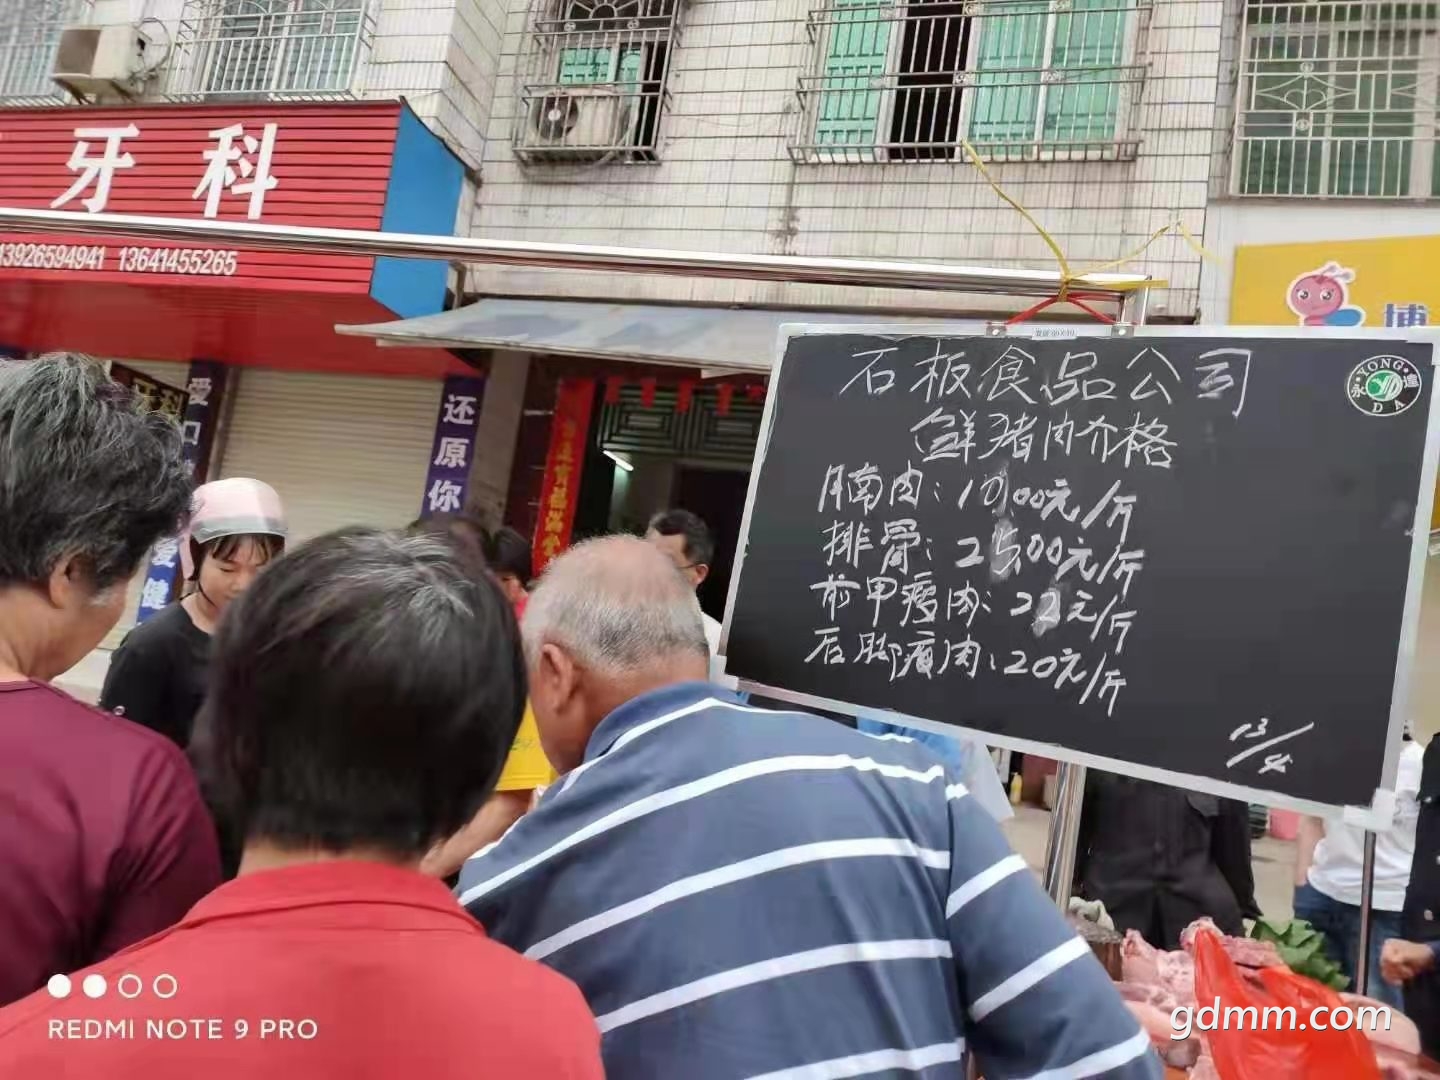 牙科
13926594941 13641455265
牙科
爱
还原你
爱健
博
石板食品公司
YONG
DA
鲜猪肉介格
腩肉:10.00元/斤
排骨:25.00元/斤
前甲瘦肉:22元/斤
后脚瘦肉:20元/斤
13/4
REDMI NOTE 9 PRO
gdmm.com